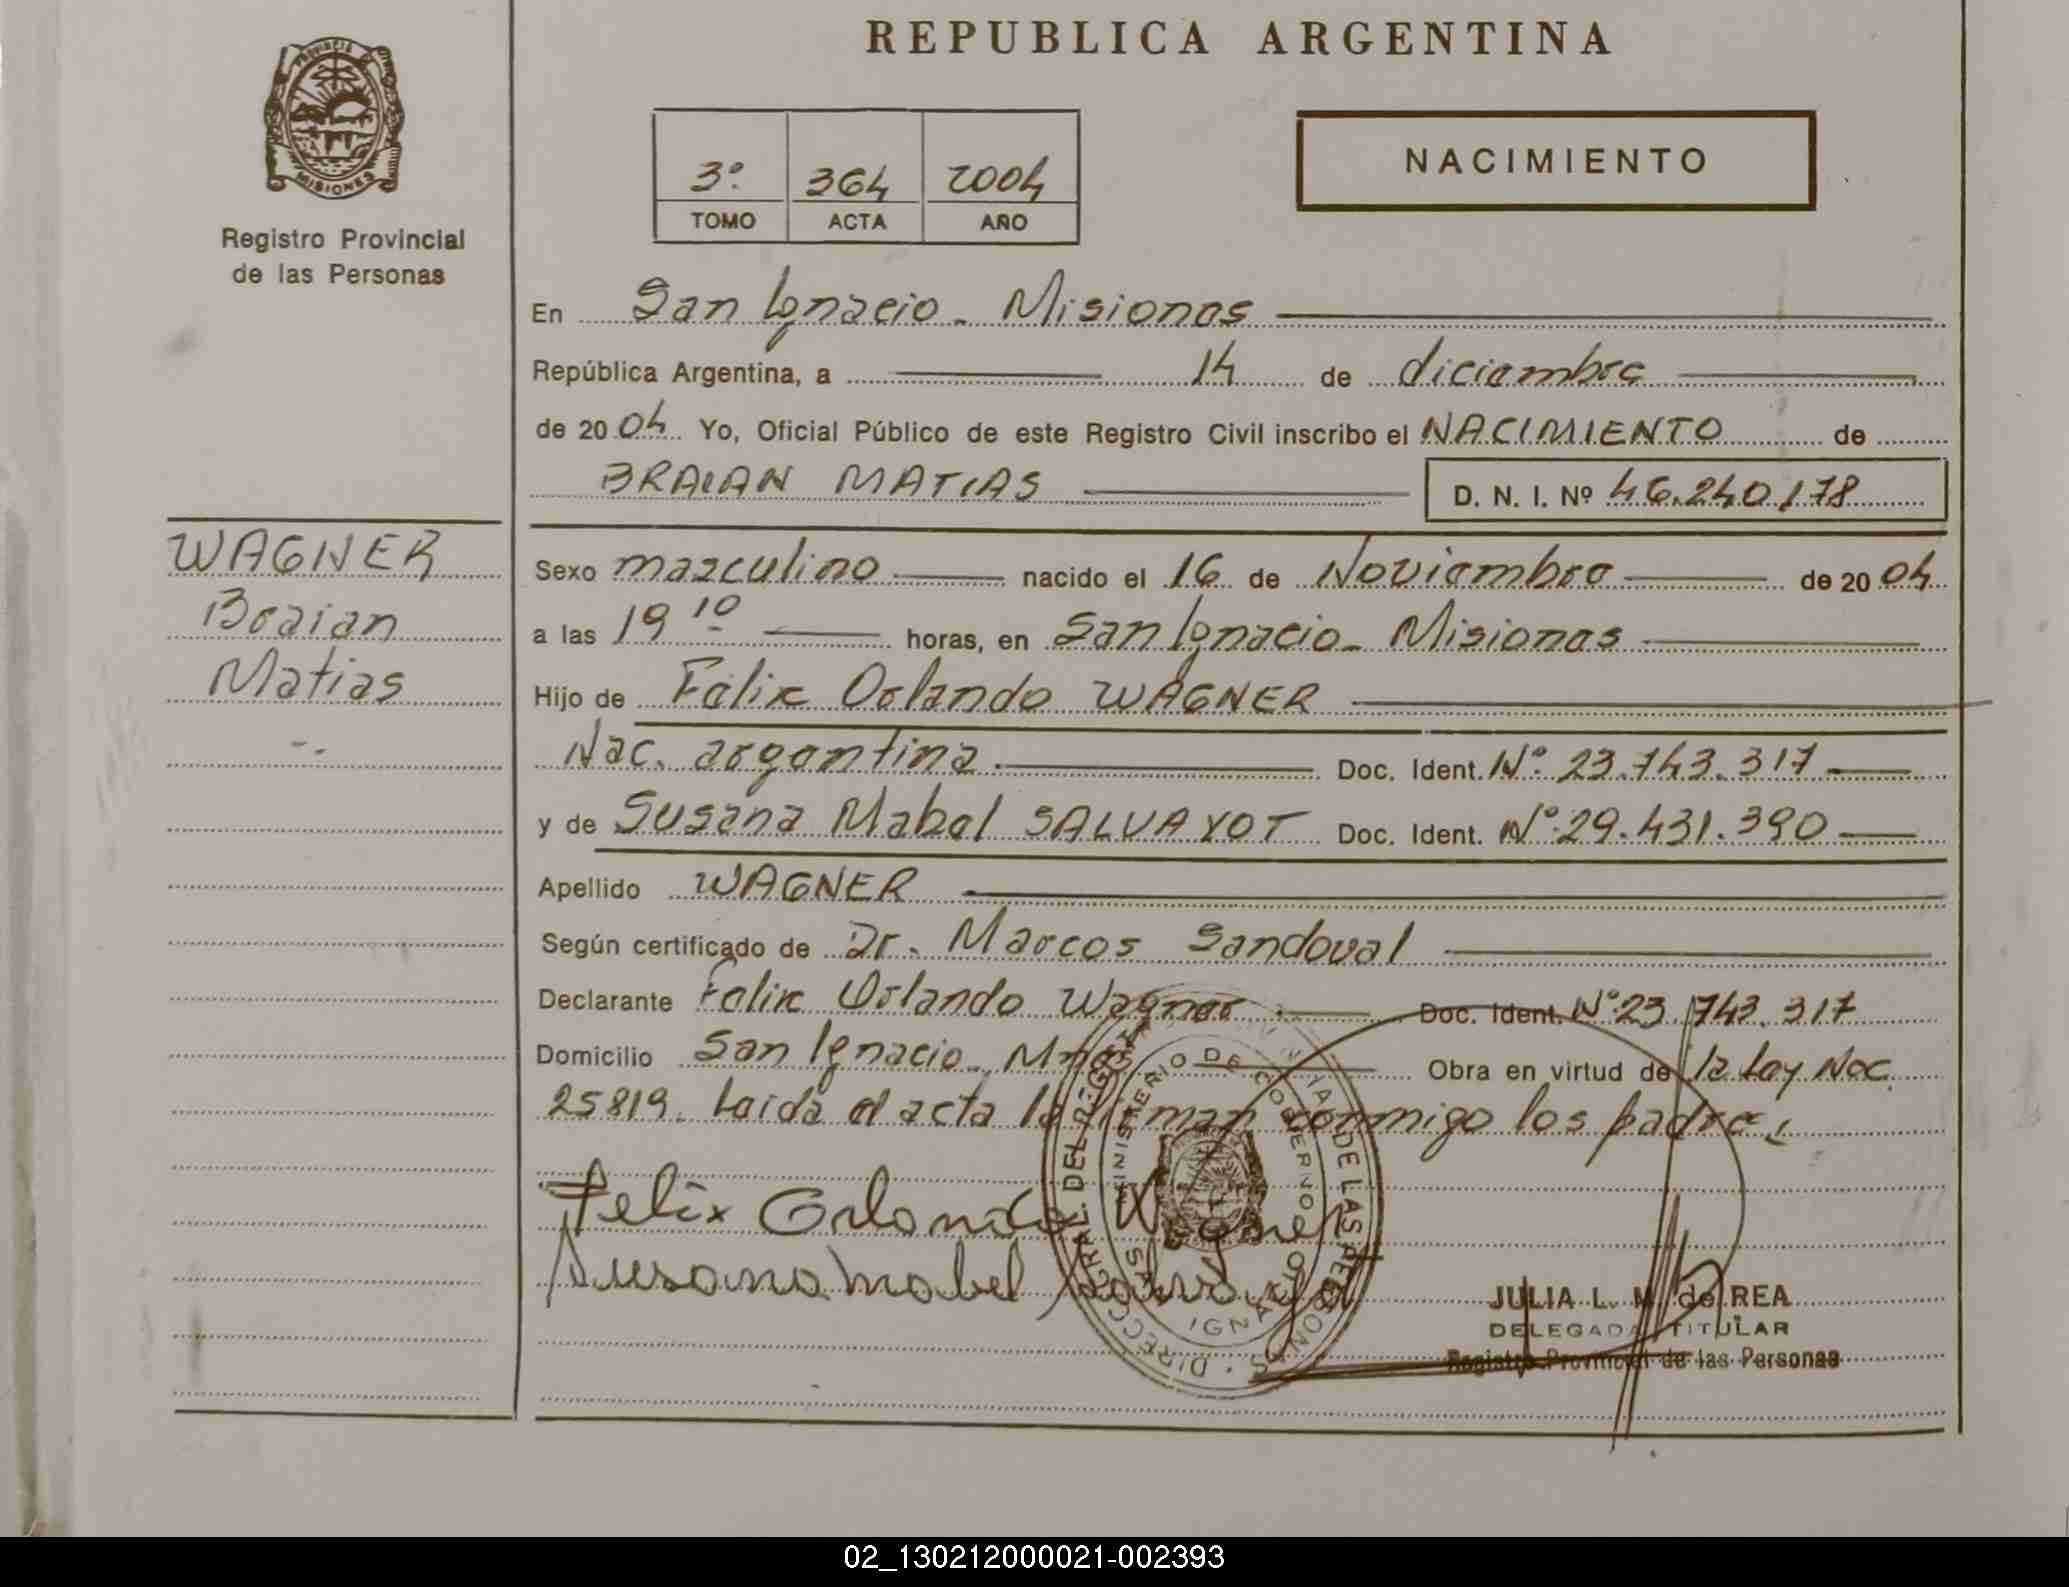 REPUBLICA ARGENTINA
PROVINCIA DE MISIONES
Registro Provincial
de las Personas
3º 364 2004
TOMO ACTA AÑO
NACIMIENTO
En San Ignacio - Misiones
República Argentina, a 14 de diciembre
de 2004 Yo, Oficial Público de este Registro Civil inscribo el NACIMIENTO de
BRAIAN MATIAS D. N. I. Nº 46.240.178
WAGNER
Braian
Matias
Sexo mazculino nacido el 16 de Noviembre de 2004
a las 19 10 horas, en San Ignacio - Misiones
Hijo de Felix Orlando WAGNER
Nac. argentina Doc. Ident. Nº 23.743.317
y de Susana Mabel SALVAYOT Doc. Ident. Nº 29.431.390
Apellido WAGNER
Según certificado de Dr. Marcos Sandoval
Declarante Felix Orlando Wagner Doc. Ident. Nº 23.743.317
Domicilio San Ignacio - Mnes Obra en virtud de la Ley Nac.
25819. Leida el acta la firman conmigo los padres
Felix Orlando Wagner
Susana mabel
DIRECC. GRAL. DEL REGIST. DE LAS PERSONAS
MINISTERIO DE GOBIERNO
SAN IGNACIO
JULIA L. M. de REA
DELEGADA TITULAR
Registro Provincial de las Personas
02_130212000021-002393